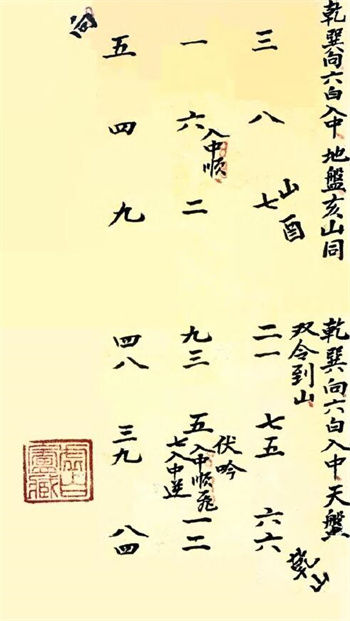 乾巽向六白入中 地盤亥山同
三 八 七
山酉
一 六 二
入中順
五 四 九
向
乾巽向六白入中天盤
双令到山
二一 七五 六六
乾山
伏吟
九三 五入中順飛 一二
七入中逆
四八 三九 八四